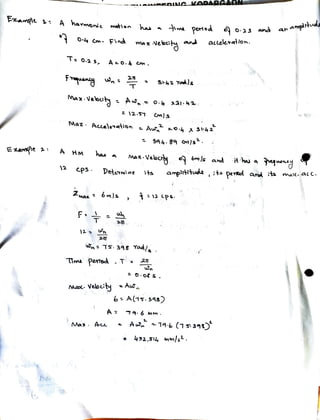 ENGINEERING KOPARGAON
Example 1: A harmonic motion has a time period of 0.2 s and an amplitude
of 0.4 cm. Find max velocity and acceleration.
T = 0.2 s, A = 0.4 cm.
Frequency ωn = 2π/T = 31.42 rad/s
Max. Velocity = Aωn = 0.4 x 31.42
= 12.57 cm/s
Max. Acceleration = Aωn² = 0.4 x 31.42²
= 394.89 cm/s²
Example 2: A HM has a max. velocity of 6m/s and it has a frequency of
12 cps. Determine its amplitude, its period and its max. acc.
Żmax = 6m/s, f = 12 cps.
F = 1/T = ωn/2π
12 = ωn/2π
ωn = 75.398 rad/s.
Time period, T = 2π/ωn
= 0.08 s.
Max Velocity = Aωn
6 = A(75.398)
A = 79.6 mm.
Max. Acc = Aωn² = 79.6 (75.398)²
= 452,514 mm/s².